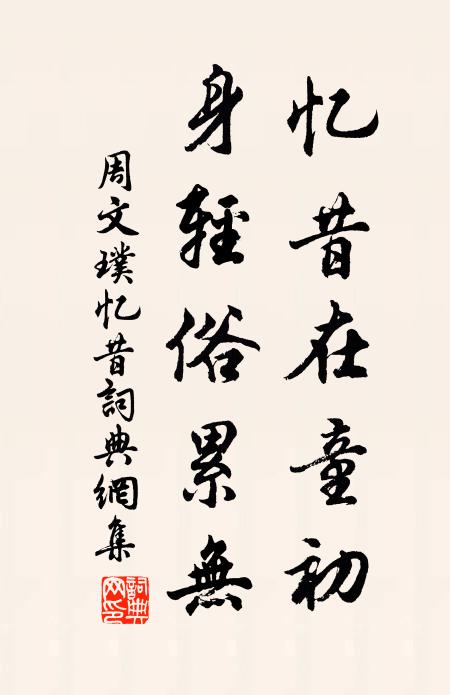 忆昔在童初
身輕俗累無
周文璞忆昔詞典網集
詞典網印